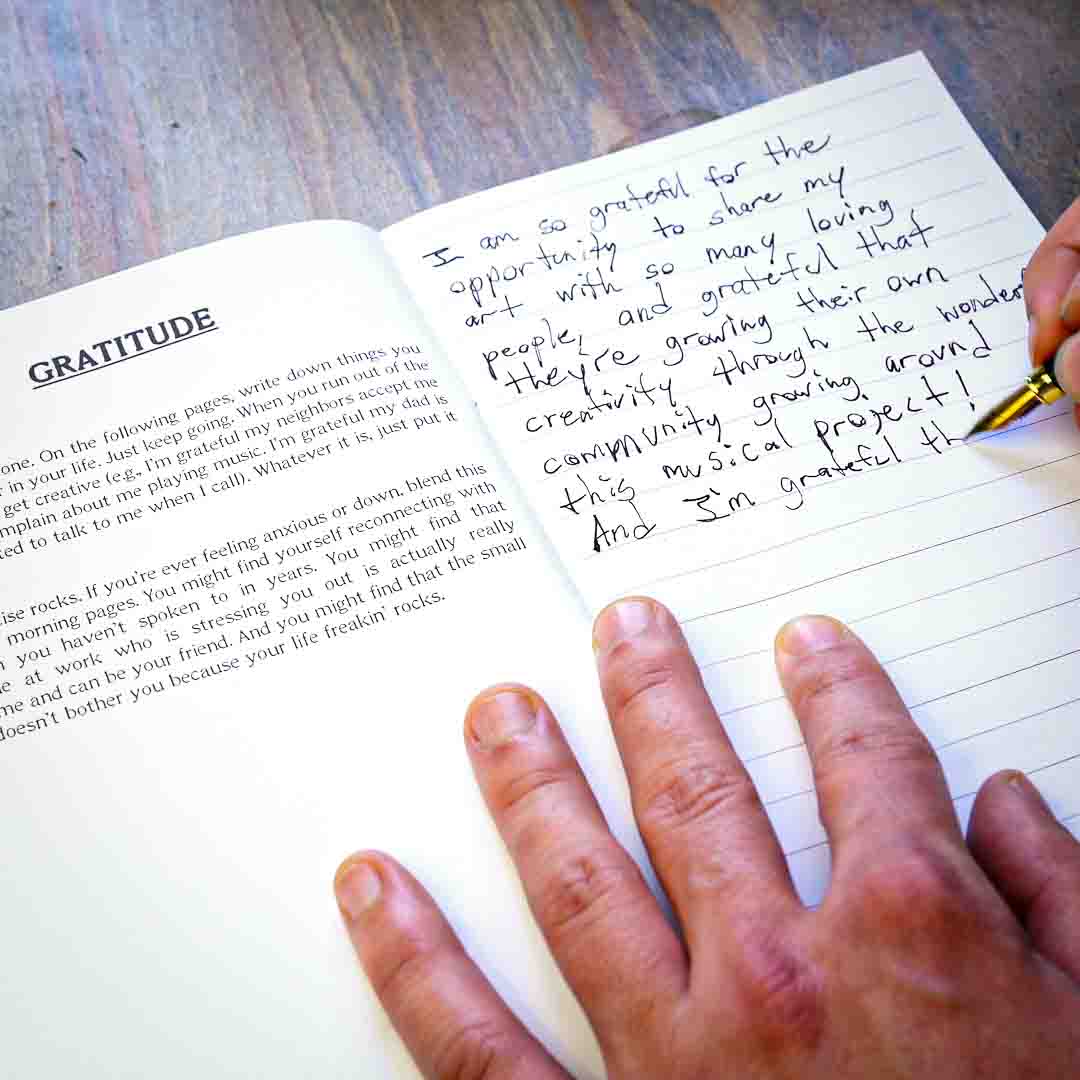 GRATITUDE
one. On the following pages, write down things you
in your life. Just keep going. When you run out of the
get creative (e.g., I'm grateful my neighbors accept me
mplain about me playing music. I'm grateful my dad is
ted to talk to me when I call). Whatever it is, just put it
ise rocks. If you're ever feeling anxious or down, blend this
morning pages. You might find yourself reconnecting with
you haven't spoken to in years. You might find that
e at work who is stressing you out is actually really
me and can be your friend. And you might find that the small
doesn't bother you because your life freakin' rocks.
I am so grateful for the
opportunity to share my
art with so many loving
people, and grateful that
they're growing their own
creativity through the wonderf
community growing around
this musical project!
And I'm grateful th